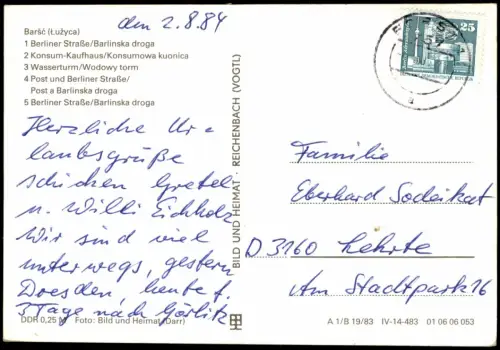 den 2.8.84
Baršć (Łužyca)
1 Berliner Straße/Barlinska droga
2 Konsum-Kaufhaus/Konsumowa kuonica
3 Wasserturm/Wodowy torm
4 Post und Berliner Straße/
Post a Barlinska droga
5 Berliner Straße/Barlinska droga
Herzliche Ur=
laubsgrüße
schicken Gretel
u. Willi Eichholz
Wir sind viel
unterwegs, gestern
Dresden, heute f.
3 Tage nach Görlitz
DDR 0,25 M Foto: Bild und Heimat (Darr)
BILD UND HEIMAT · REICHENBACH (VOGTL)
25
Familie
Eberhard Sodeikat
D 3160 Lehrte
Am Stadtpark 16
A 1/B 19/83 IV-14-483 01 06 06 053